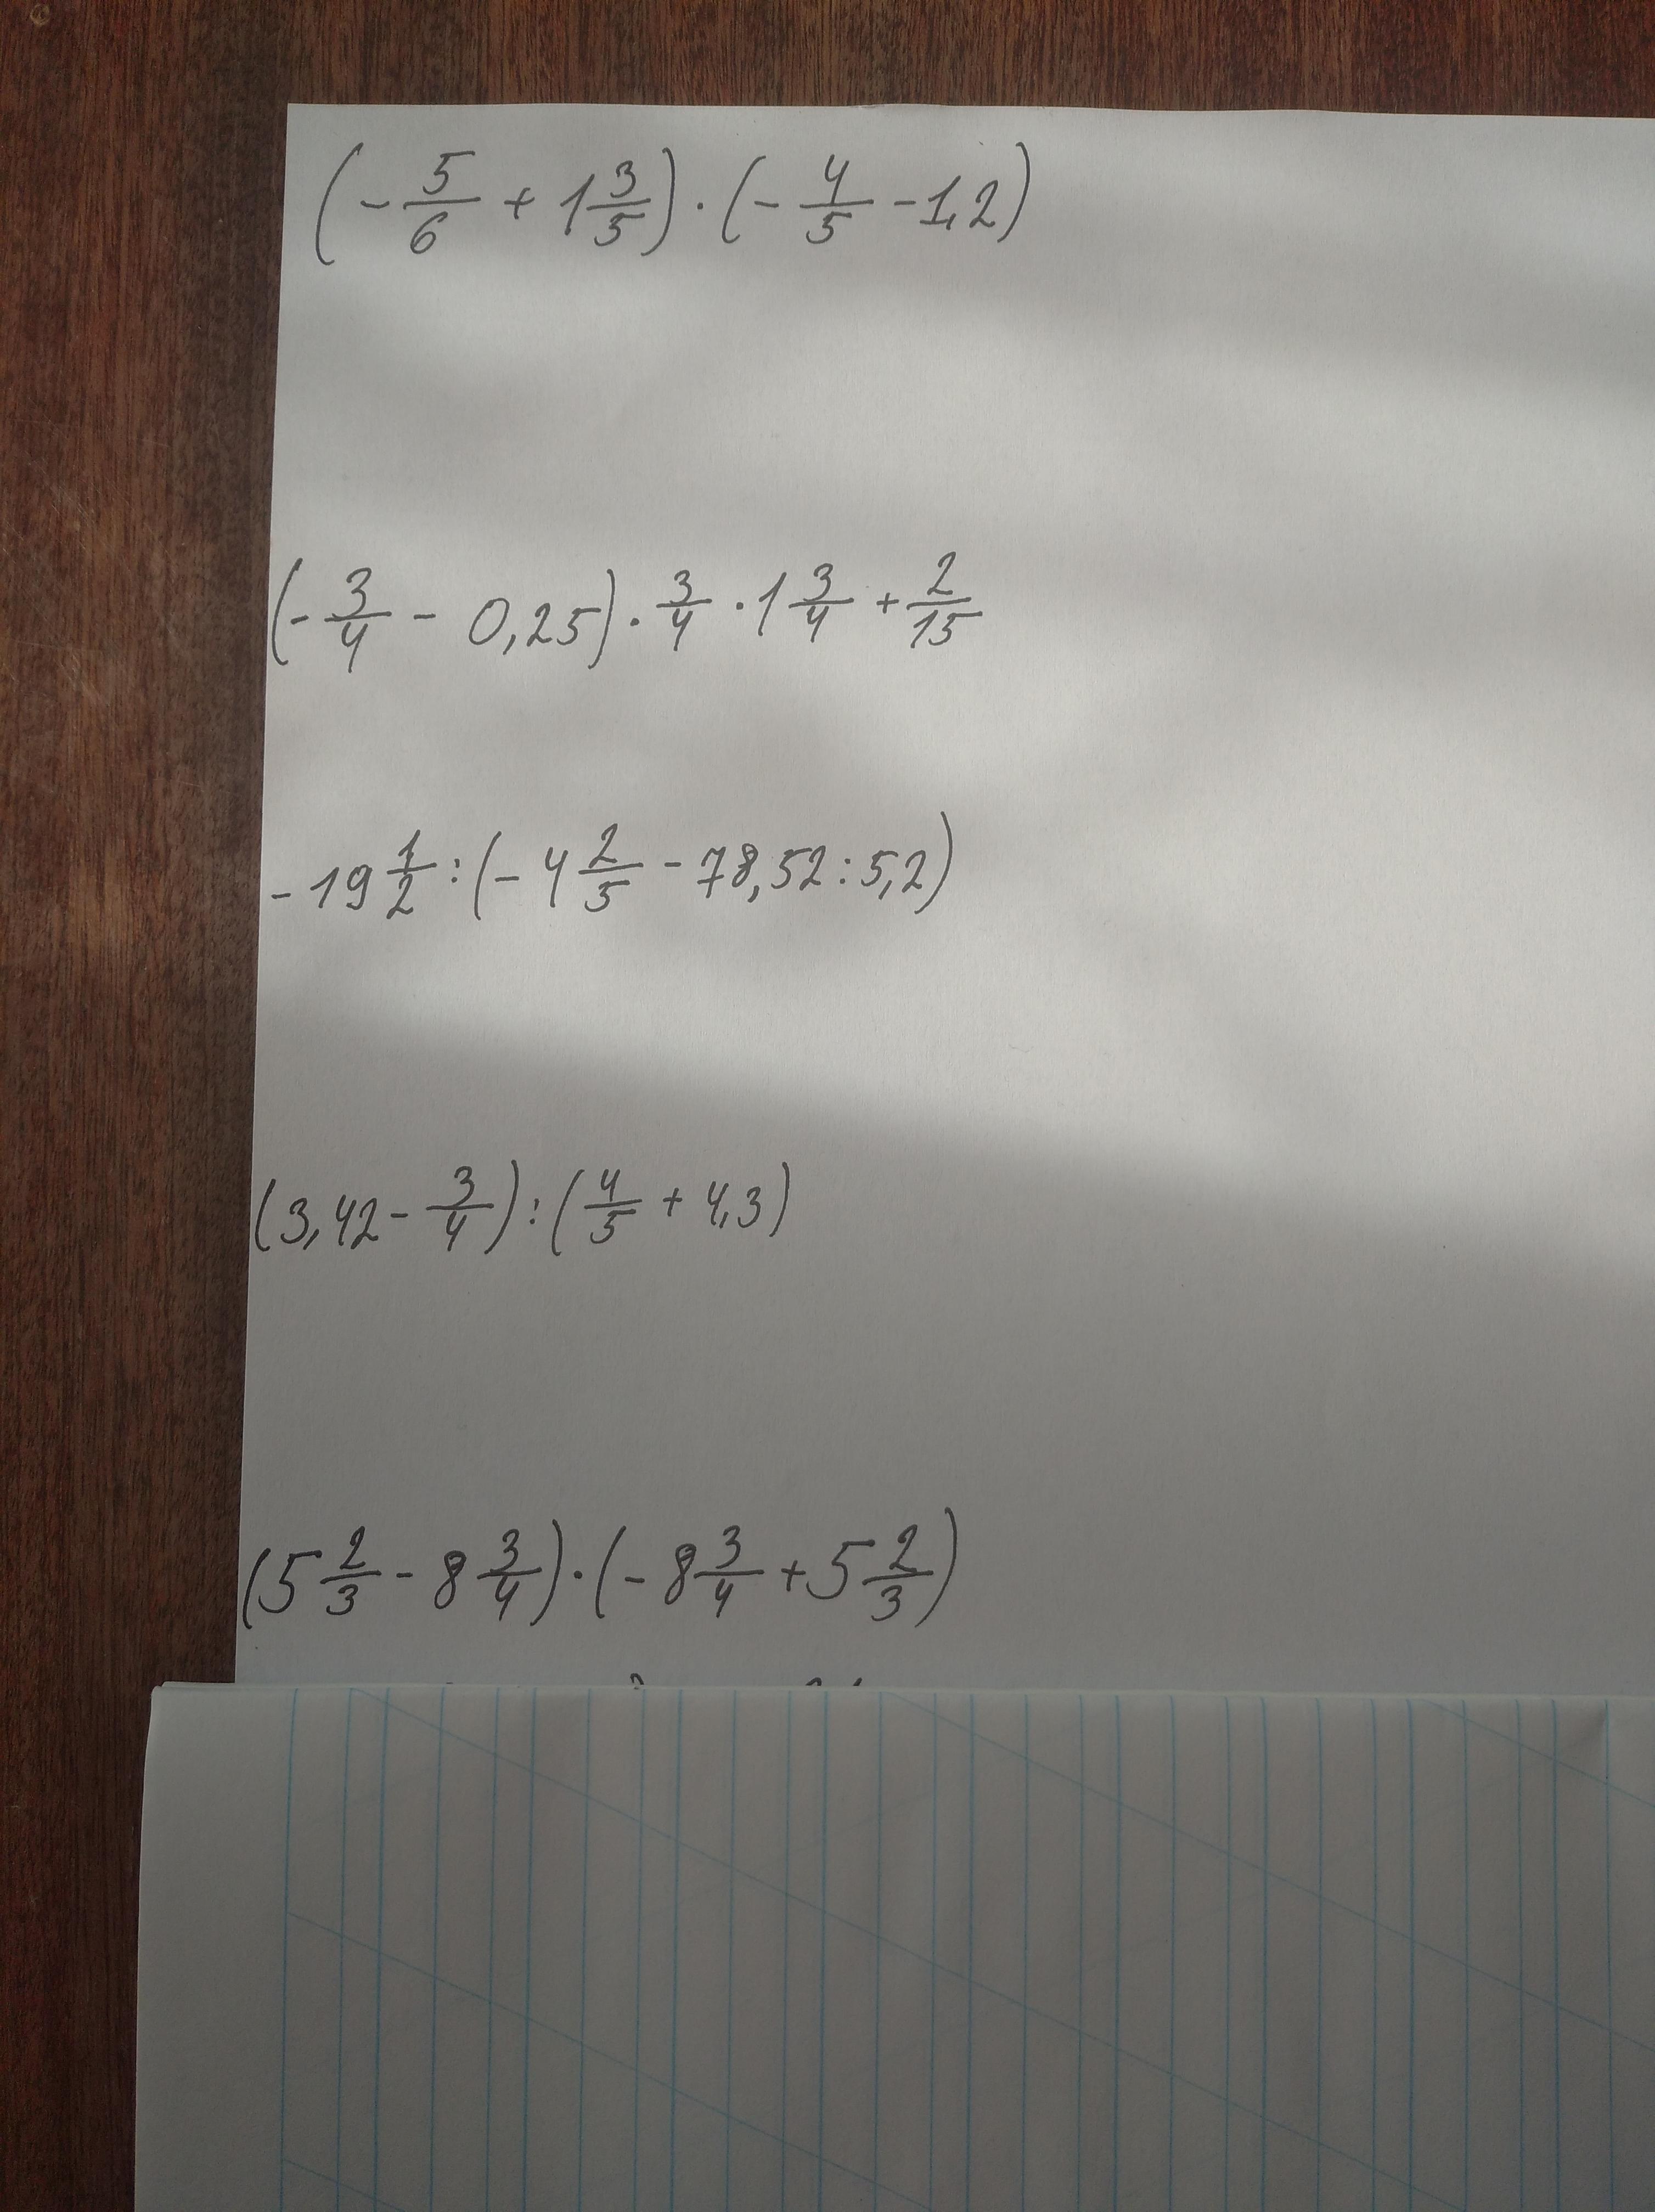 (-5/6 + 1 3/5) · (-4/5 - 1,2)
(-3/4 - 0,25) · 3/4 · 1 3/4 + 2/15
-19 1/2 : (-4 2/5 - 78,52 : 5,2)
(3,42 - 3/4) : (4/5 + 4,3)
(5 2/3 - 8 3/4) · (-8 3/4 + 5 2/3)